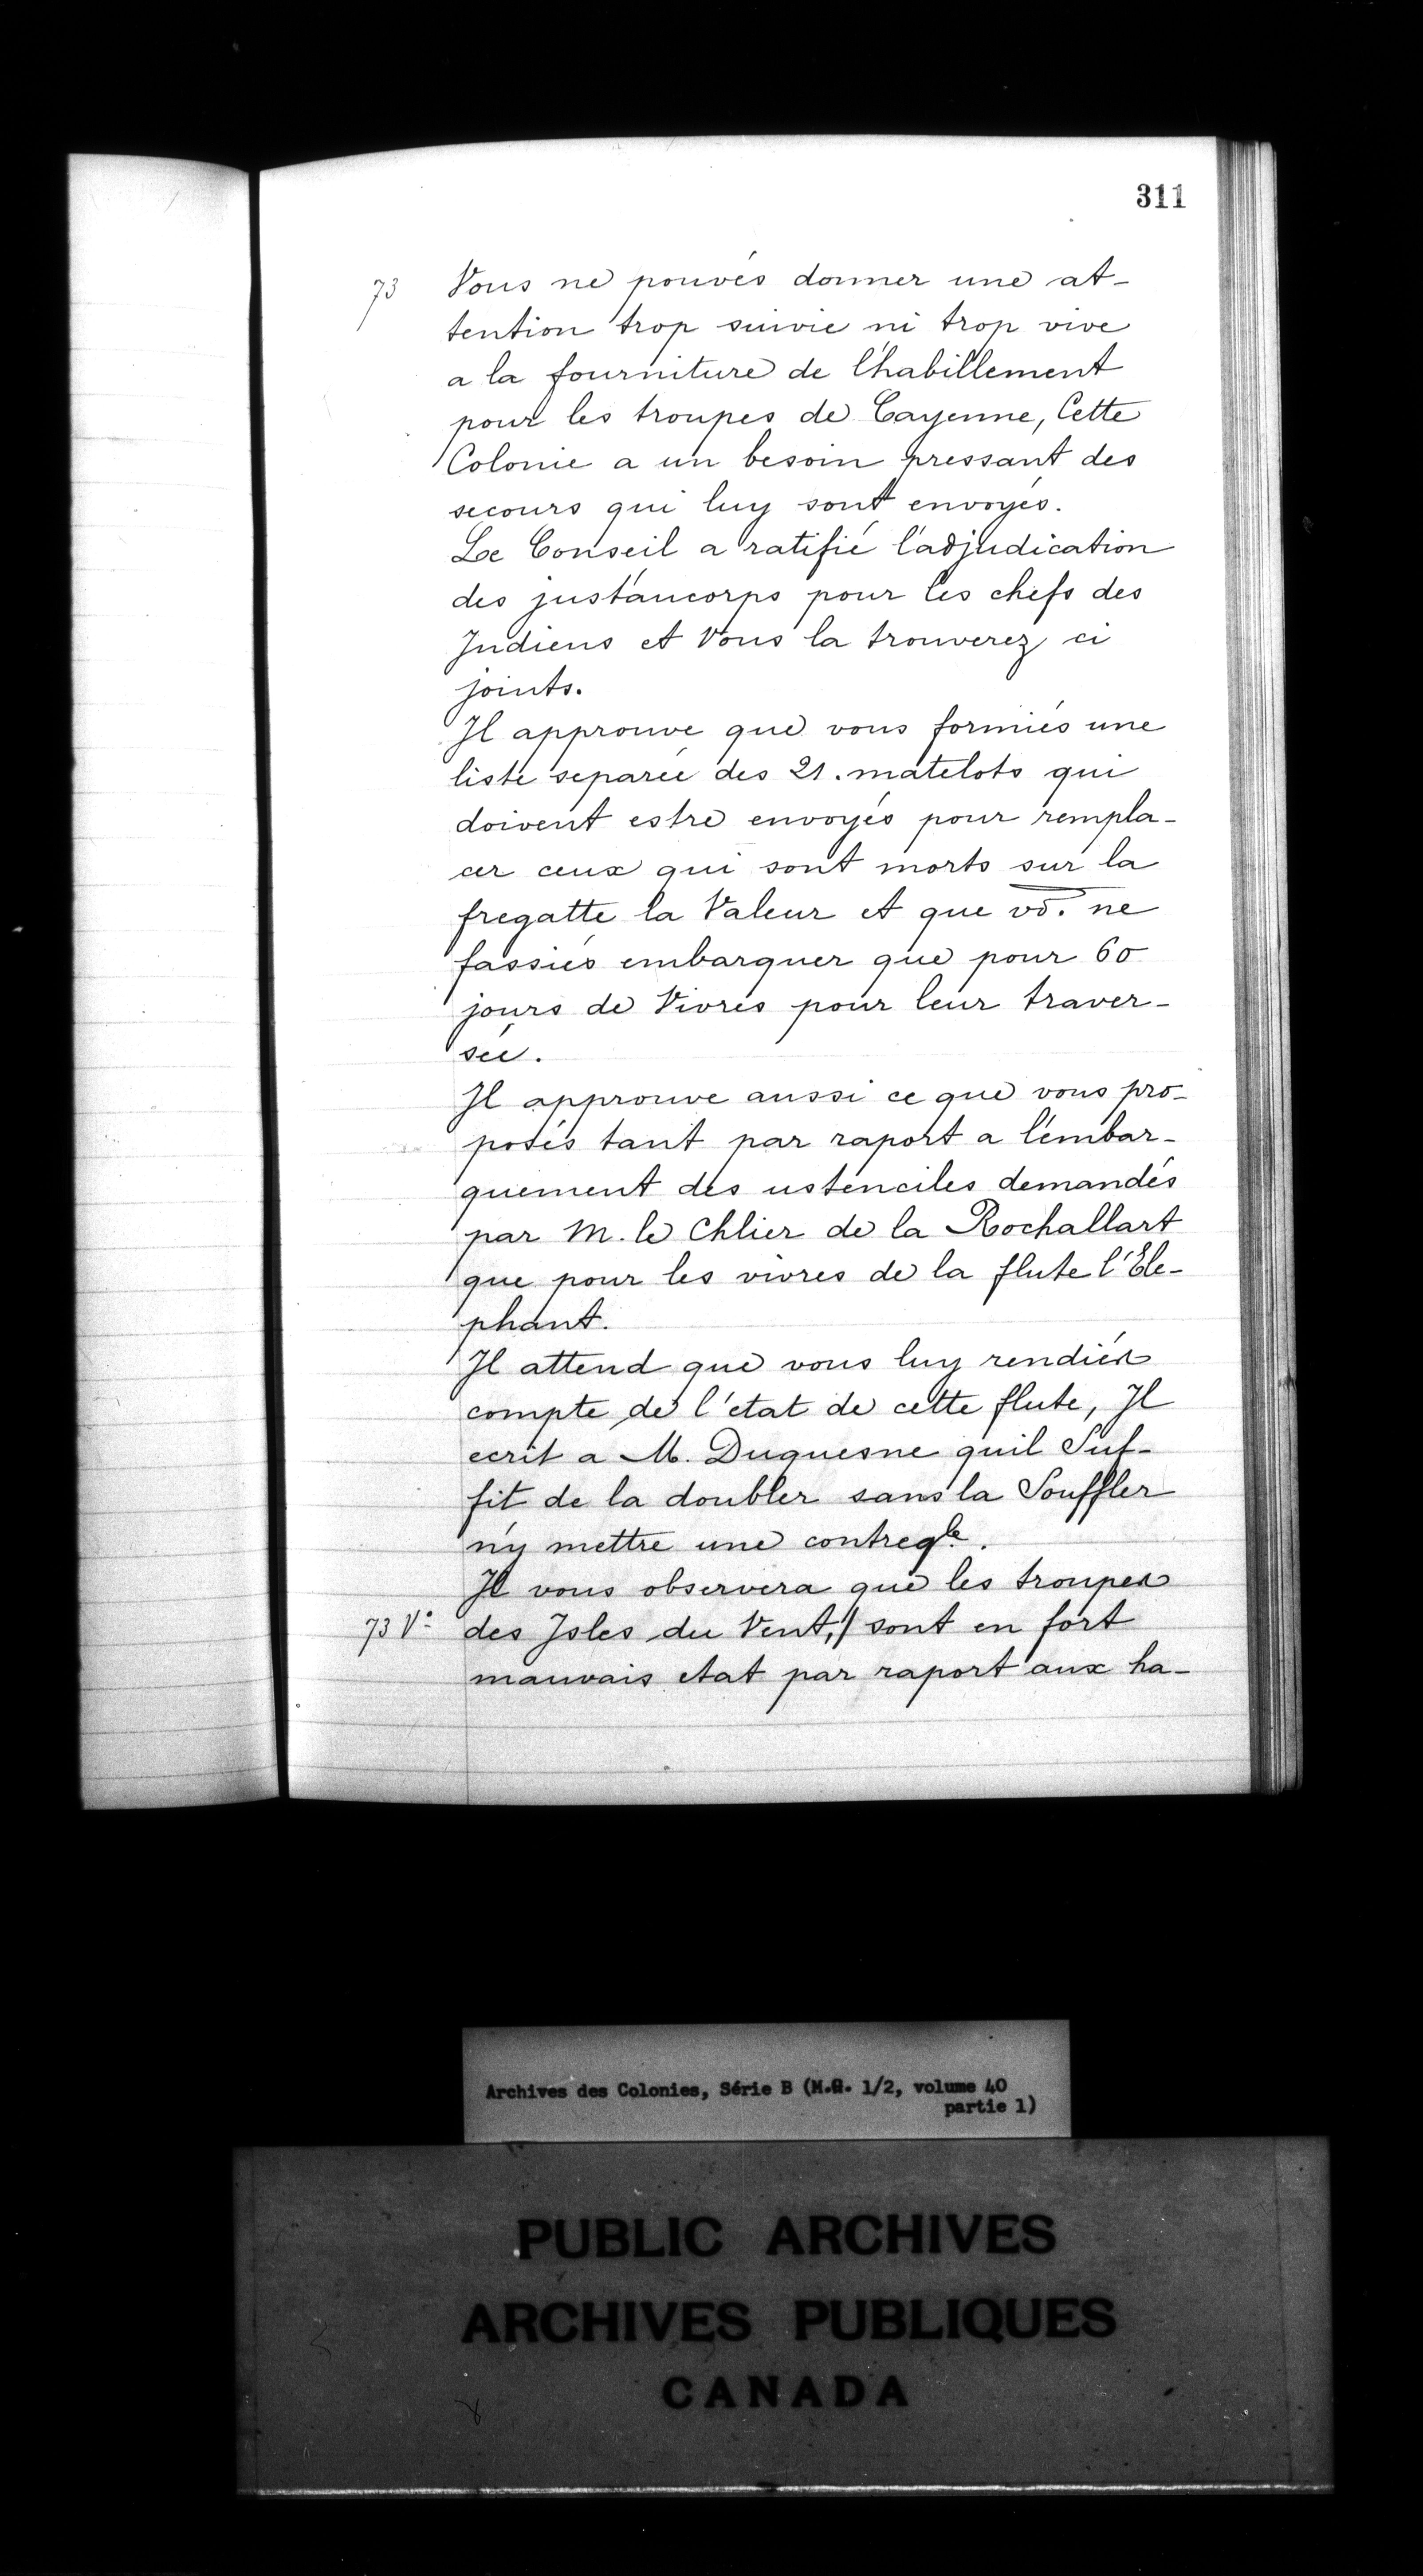 311
73 Vous ne pouvés donner une at-
tention trop suivie ni trop vive
a la fourniture de l'habillement
pour les troupes de Cayenne, Cette
Colonie a un besoin pressant des
secours qui luy sont envoyés.
Le Conseil a ratifié l'adjudication
des just'aucorps pour les chefs des
Indiens et Vous la trouverez ci
joints.
Il approuve que vous formiés une
liste separée des 21. matelots qui
doivent estre envoyés pour rempla-
cer ceux qui sont morts sur la
fregatte la Valeur et que vō. ne
fassiés embarquer que pour 60
jours de Vivres pour leur traver-
sée.
Il approuve aussi ce que vous pro-
posés tant par raport a l'embar-
quement des ustenciles demandés
par M. le Chlier de la Rochallart
que pour les vivres de la flute l'Ele-
phant.
Il attend que vous luy rendiés
compte de l'etat de cette flute, Il
ecrit a M. Duquesne quil Suf-
fit de la doubler sans la Souffler
n'y mettre une contreqle.
Il vous observera que les troupes
73 Vº des Isles du Vent,/ sont en fort
mauvais etat par raport aux ha-
Archives des Colonies, Série B (M.G. 1/2, volume 40
partie 1)
PUBLIC ARCHIVES
ARCHIVES PUBLIQUES
CANADA